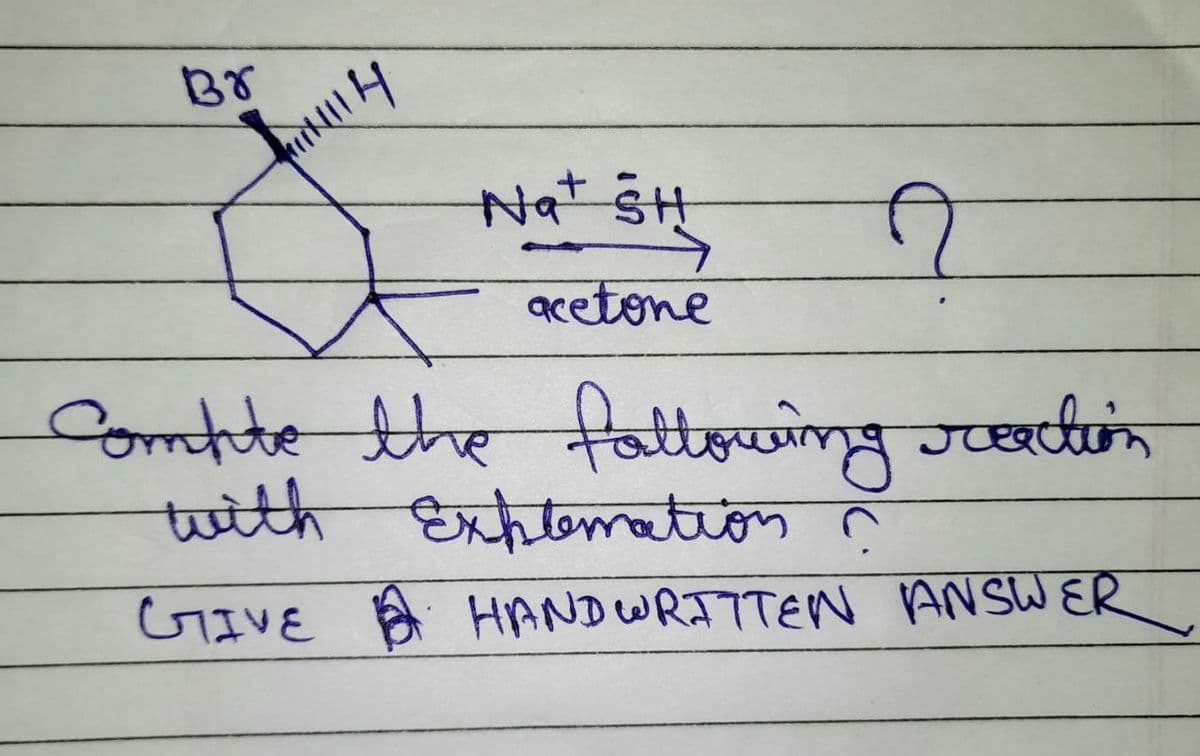 Br
H
Na+ S̄H
?
acetone
Compte the following reaction
with Explemation ?
GIVE A HANDWRITTEN ANSWER